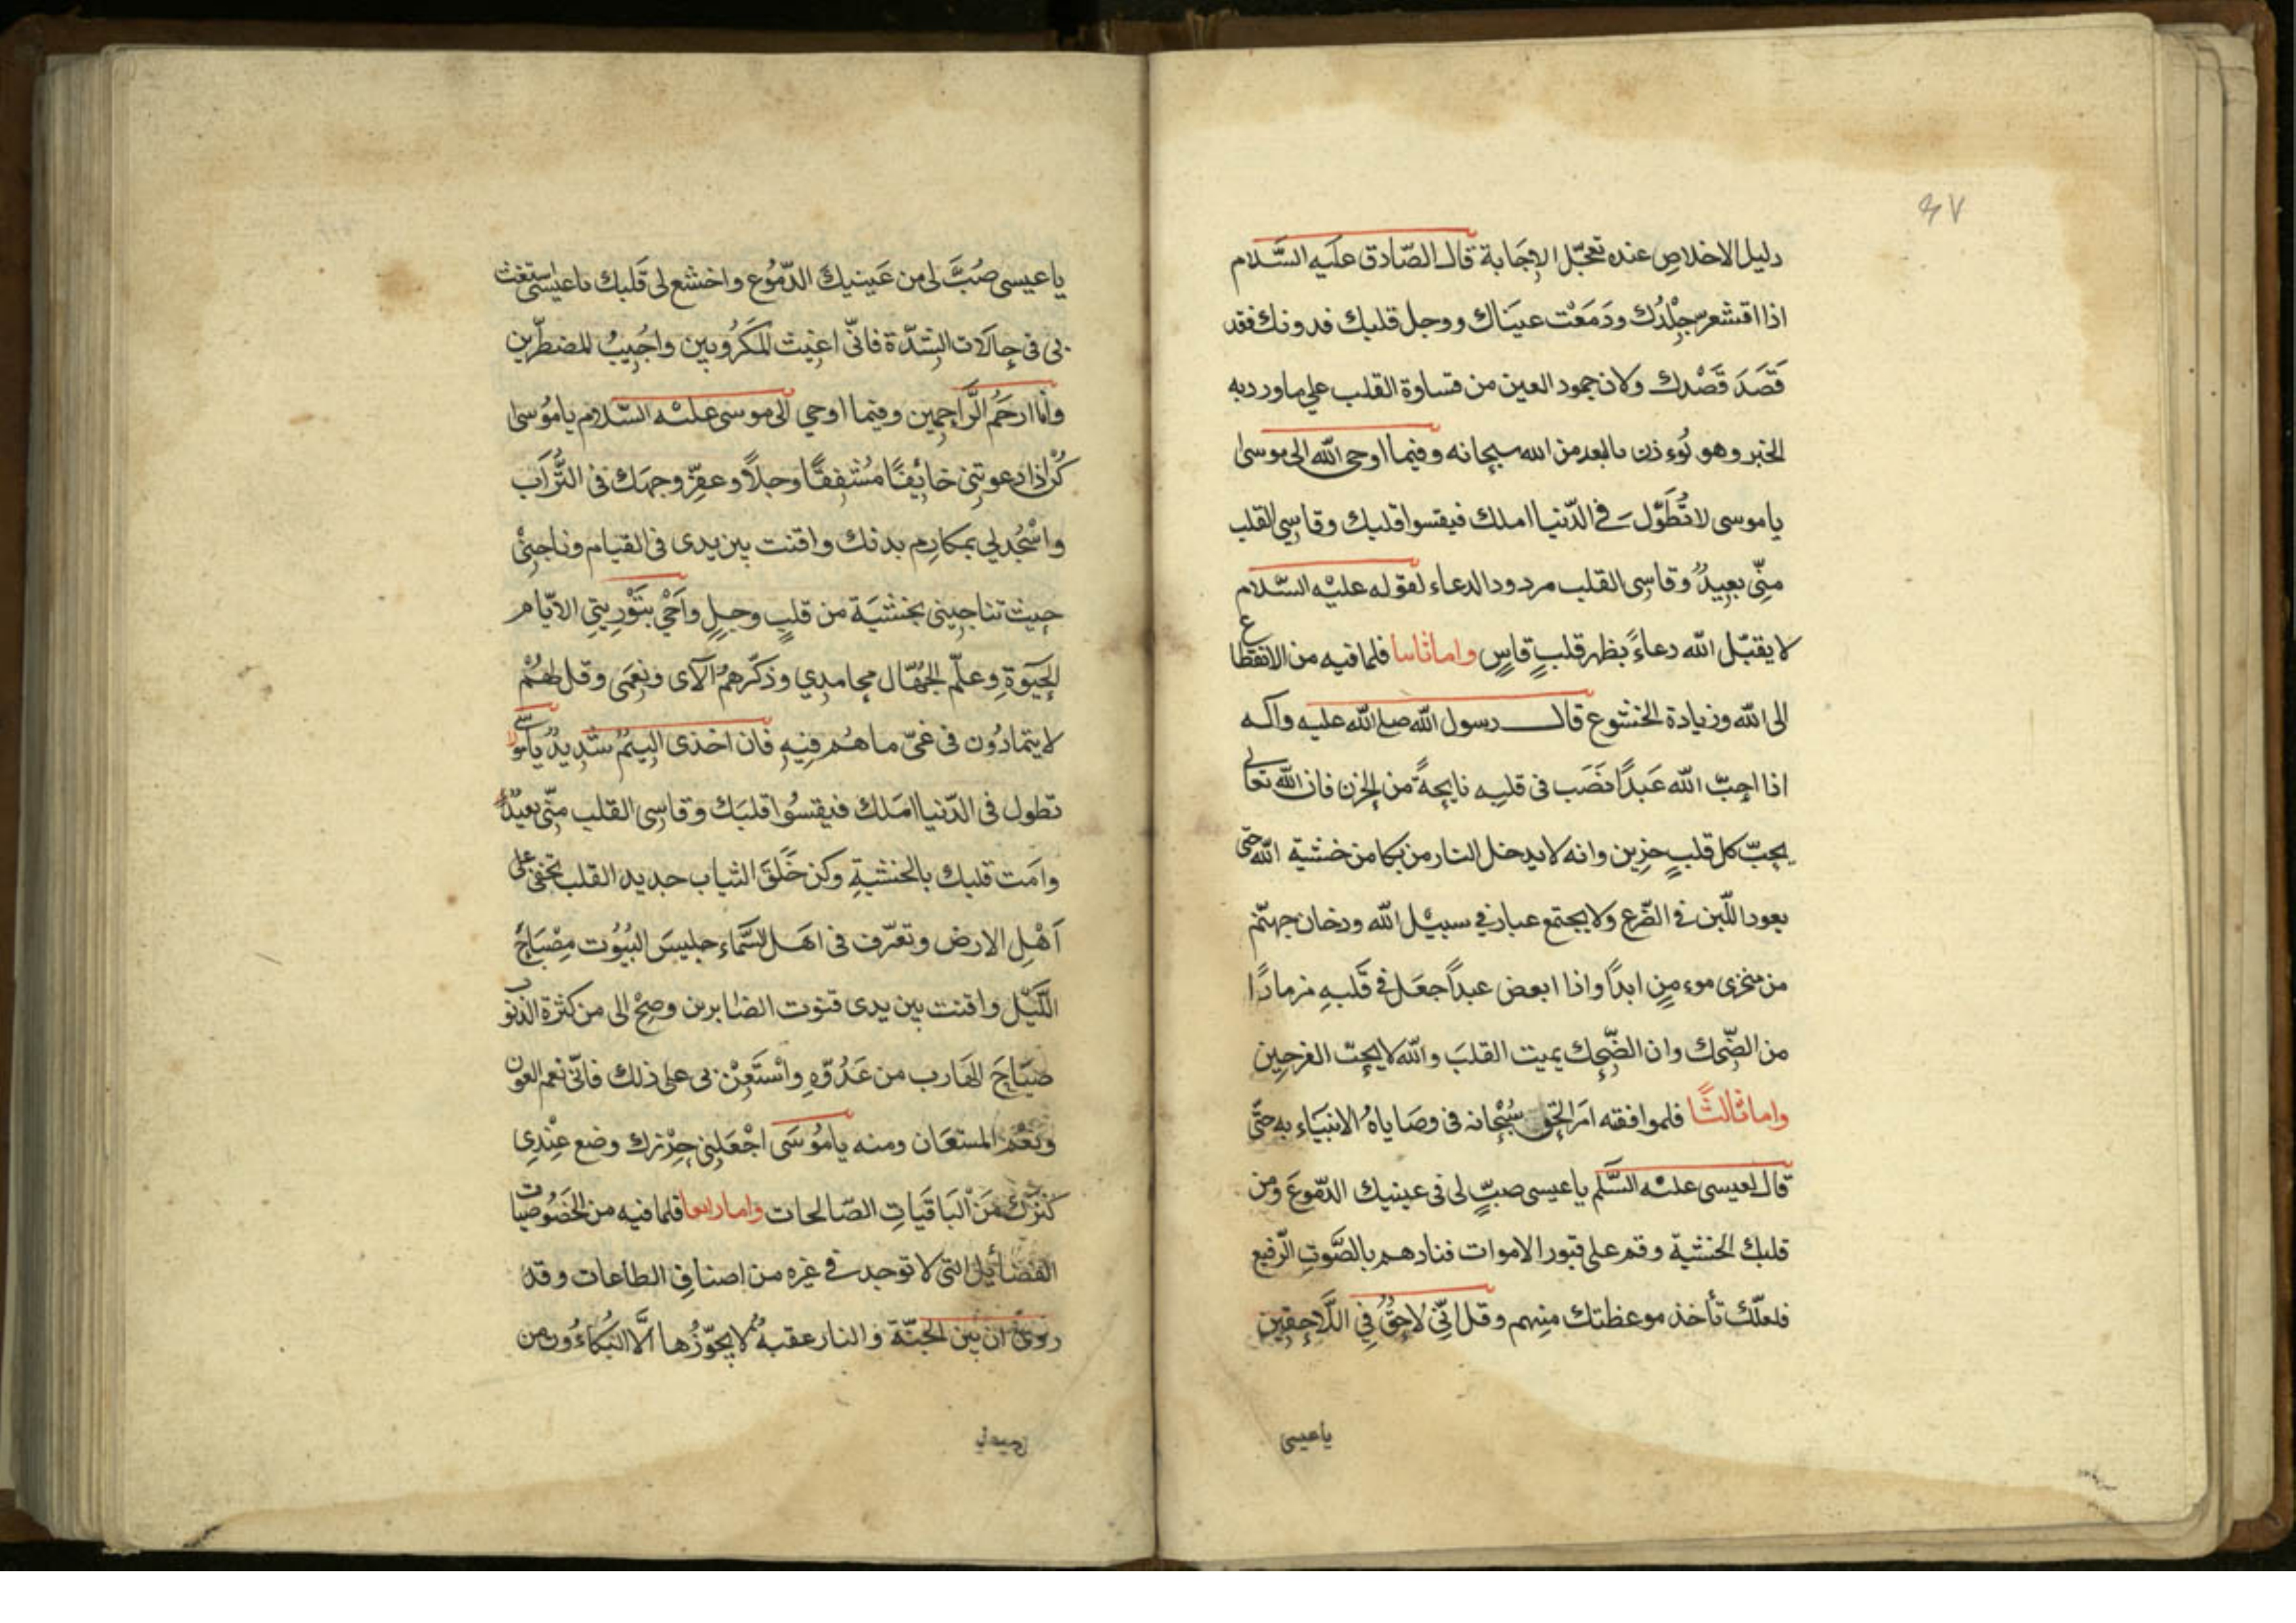 ٩٧
دليل الاخلاصِ عنده تعجّل الاِجَابة قال الصّادق عليَه السَّلام
اذا اقشعر جِلْدُك ودَمَعَت عينَاك ووجل قلبك فدونك فقد
قَصَدَ قَصْدك ولان جمود العين من قساوة القلب علي ماورد به
الخبر وهو تُوءذن بالبعد من الله سبحانه وفيما اوحى الله الى موسى
ياموسى لاتُطَوّل في الدّنيا املك فيقسوا قلبك وقاسِي القلب
منّي بعِيدٌ وقاسِى القلب مردود الدعاء لقوله عليْه السّلام
لايقبّل الله دعاءً بظهر قلبٍ قاسٍ واماثانيا فلما فيه من الانقطاع
الى الله وزيادة الخشوع قال رسول الله صلى الله عليه واله
اذا احبّ الله عَبداً نصَب في قلبِه نايحةً من الحزن فان الله تعالى
يحِبّ كل قلبٍ حزِين وانه لايدخل النار من بكا من خشية الله حتى
يعود اللّبن في الضّرع ولايجتمع غبار في سبيْل الله ودخان جهنّم
من منخرى موءمنٍ ابداً واذا ابغض عبداً جعَل في قَلبهِ مزمارًا
من الضّحك وان الضّحِك يميت القلبَ والله لايحِبّ الفرحِين
واما ثالثًا فلموافقته امَر الحق سُبْحانه في وصَاياهُ الانبيَاء به حتّى
قال لعيسى عليه السَّلم ياعيسى صبِّ لى في عينيك الدّموعَ ومن
قلبك الخشية وقم على قبور الاموات فنادهم بالصَّوتِ الرّفيع
فلعلّك تأخذ موعظتك منهم وقل اِنّى لاحِقٌ فِي اللَّاحِقِين
ياعيسى
ياعيسى صُبَّ لى من عَينيكَ الدّمُوع واخشع لى قَلبك ياعيسى استغث
بى في حالَات الشدّة فانّى اغيث المَكرُوبين واُجِيبُ المضطرّين
وانا ارحَمُ الرَّاحِمين وفيما اوحي الى موسى عليْه السّلام ياموُسى
كُن اذا دعوتنى خائِفًا مُشفِقًا وجلاً وعفرّ وجهَك في التُّراب
واسْجُد لي بمكارِم بدنك واقنت بين يدى في القيام وناجِنىْ
حيث تناجِينى بخشيَة من قلبٍ وجِلٍ واَحْي بتَوْرِيتي الايّام
الحَيَوةِ وعلّم الجُهّال محامدِي وذكّرهمُ الآى ونِعَمى وقل لهُمْ
لايتمادُون في غىّ ماهُم فيِهِ فان اخذى اليمٌ شديدٌ ياموسى لا
تطول في الدّنيا امَلك فيقسُوا قلبَك وقاسِى القلب منّى بعيدٌ
وامَت قلبك بالخشيةِ وكن خَلَقَ الثياب جديد القلب تخفى على
اَهْل الارض وتعرّف في اهَل السّماء جليسَ البُيُوت مِصْبَاحَ
اللّيل واقنت بين يدى قنوت الصّابرين وصِحْ الى من كثرة الذنوب
صيَاحَ الهَارب من عَدُوّهِ واْستَعِنْ بى على ذلك فانّى نعم العون
ونعْمَ المستعَان ومنه ياموُسَى اجْعَلِنى حِرْزك وضع عِنْدِى
كنزك مَن الْبَاقيَاتِ الصّالحات واما رابعا فلما فيه من الخصُوصيات
الفضَائِل التى لاتوجد في غيره من اصنافِ الطاعات وقد
روى ان بين الجنّة والنار عقبةٌ لايجوّزُها الَّا البَكّاءُون من